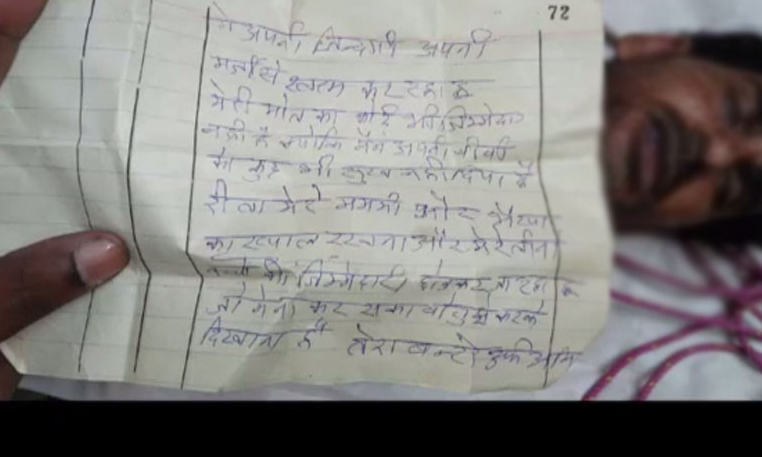 72
मे अपनी जिन्दगी अपनी
मर्जी से खतम कर रहा हू
मेरी मोत का कोई भी जिम्मेदार
नही है क्योकि मैने अपनी बीवी
को कुछ भी सुख नही दिया है
मेरे मम्मी और
का ख्याल रखना और मेरे तीन
की जिम्मेदारी छोडकर जा रहा हू
जो मे ना कर सका वो तुझे करके
दिखाना है तेरा बन्टी उर्फ